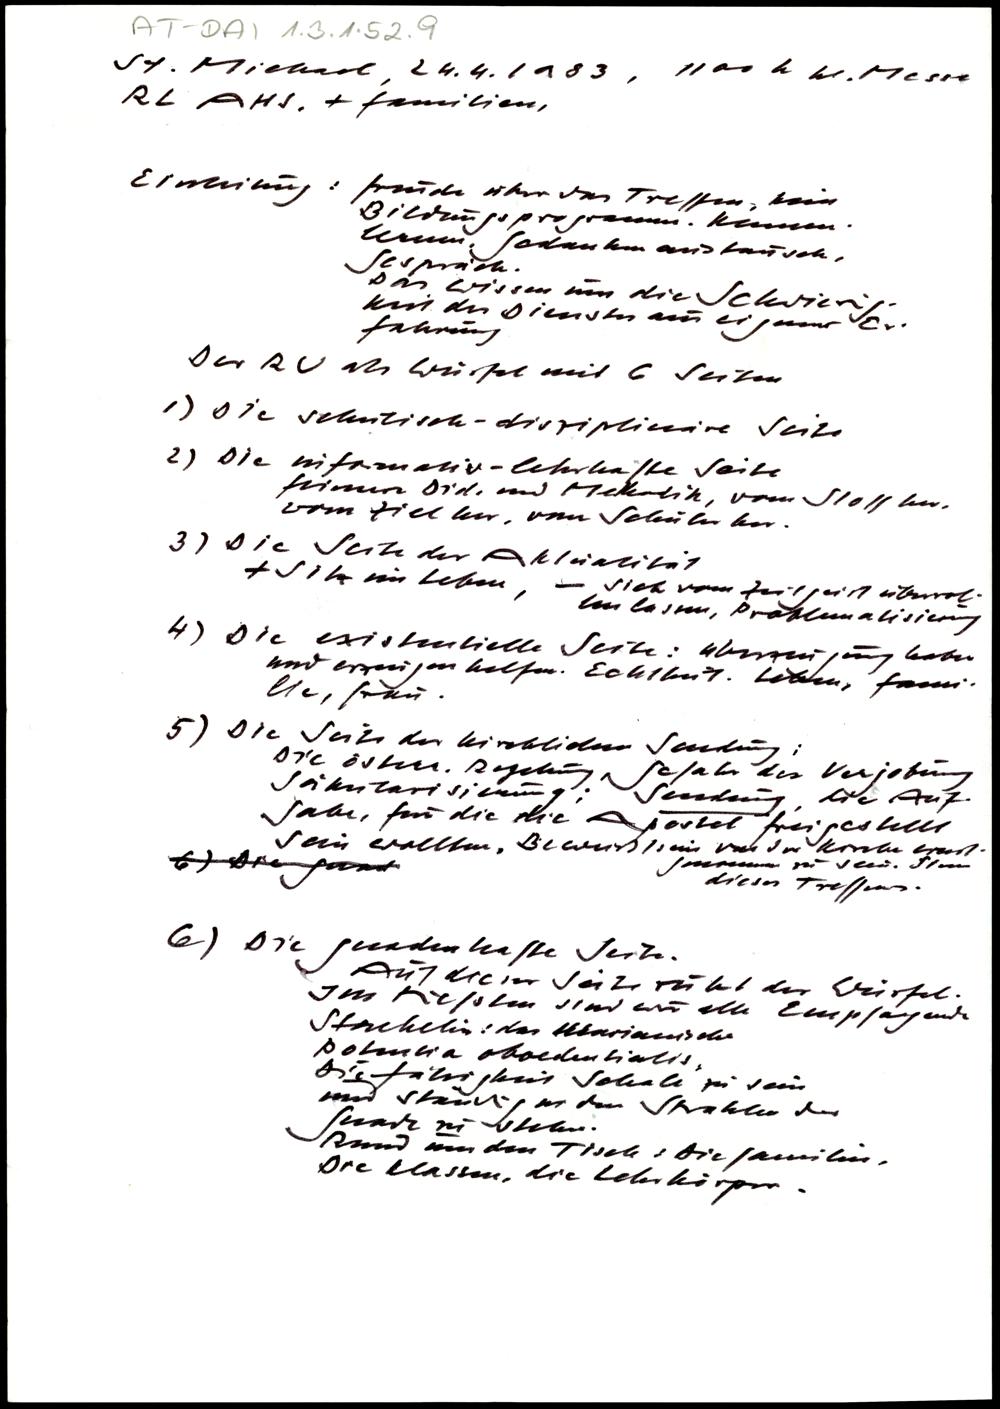 AT-DAI 1.3.1.52.9
St. Michael, 24.4.1983, 11 00 h hl. Messe
RL AHS. + Familien,
Einleitung: Freude über das Treffen, kein
Bildungsprogramm. Kennen-
lernen, Gedankenaustausch,
Gespräch.
Das Wissen um die Schwierig-
keit des Dienstes aus eigener Er-
fahrung
Der RU als Würfel mit 6 Seiten
1) Die schulisch-disziplinäre Seite
2) Die informativ-lehrhafte Seite
Did. und Methodik, vom Stoff her,
vom Ziel her, vom Schüler her.
3) Die Seite der Aktualität
+ Sitz im Leben, - sich vom Zeitgeist überrol-
len lassen, Problematisierung
4) Die existentielle Seite: Überzeugung haben
und erzeugen helfen. Echtheit. Leben, Fami-
lie, Frau.
5) Die Seite der kirchlichen Sendung:
Die österr. Regelung, Gefahr der
Säkularisierung; Sendung, die Auf-
gabe, für die die Apostel freigestellt
sein wollten, Bewusstsein von der Kirche ernst-
genommen zu sein. Sinn
dieses Treffens.
6) Die gnad
6) Die gnadenhafte Seite.
Auf dieser Seite ruht der Würfel.
Im Tiefsten sind wir alle Empfangende
das Marianische
Potentia oboedentialis,
Die Fähigkeit Schale zu sein
und ständig in den Strahlen der
Gnade zu stehen.
Rund um den Tisch: Die Familien,
Die Klassen, die Lehrkörper.